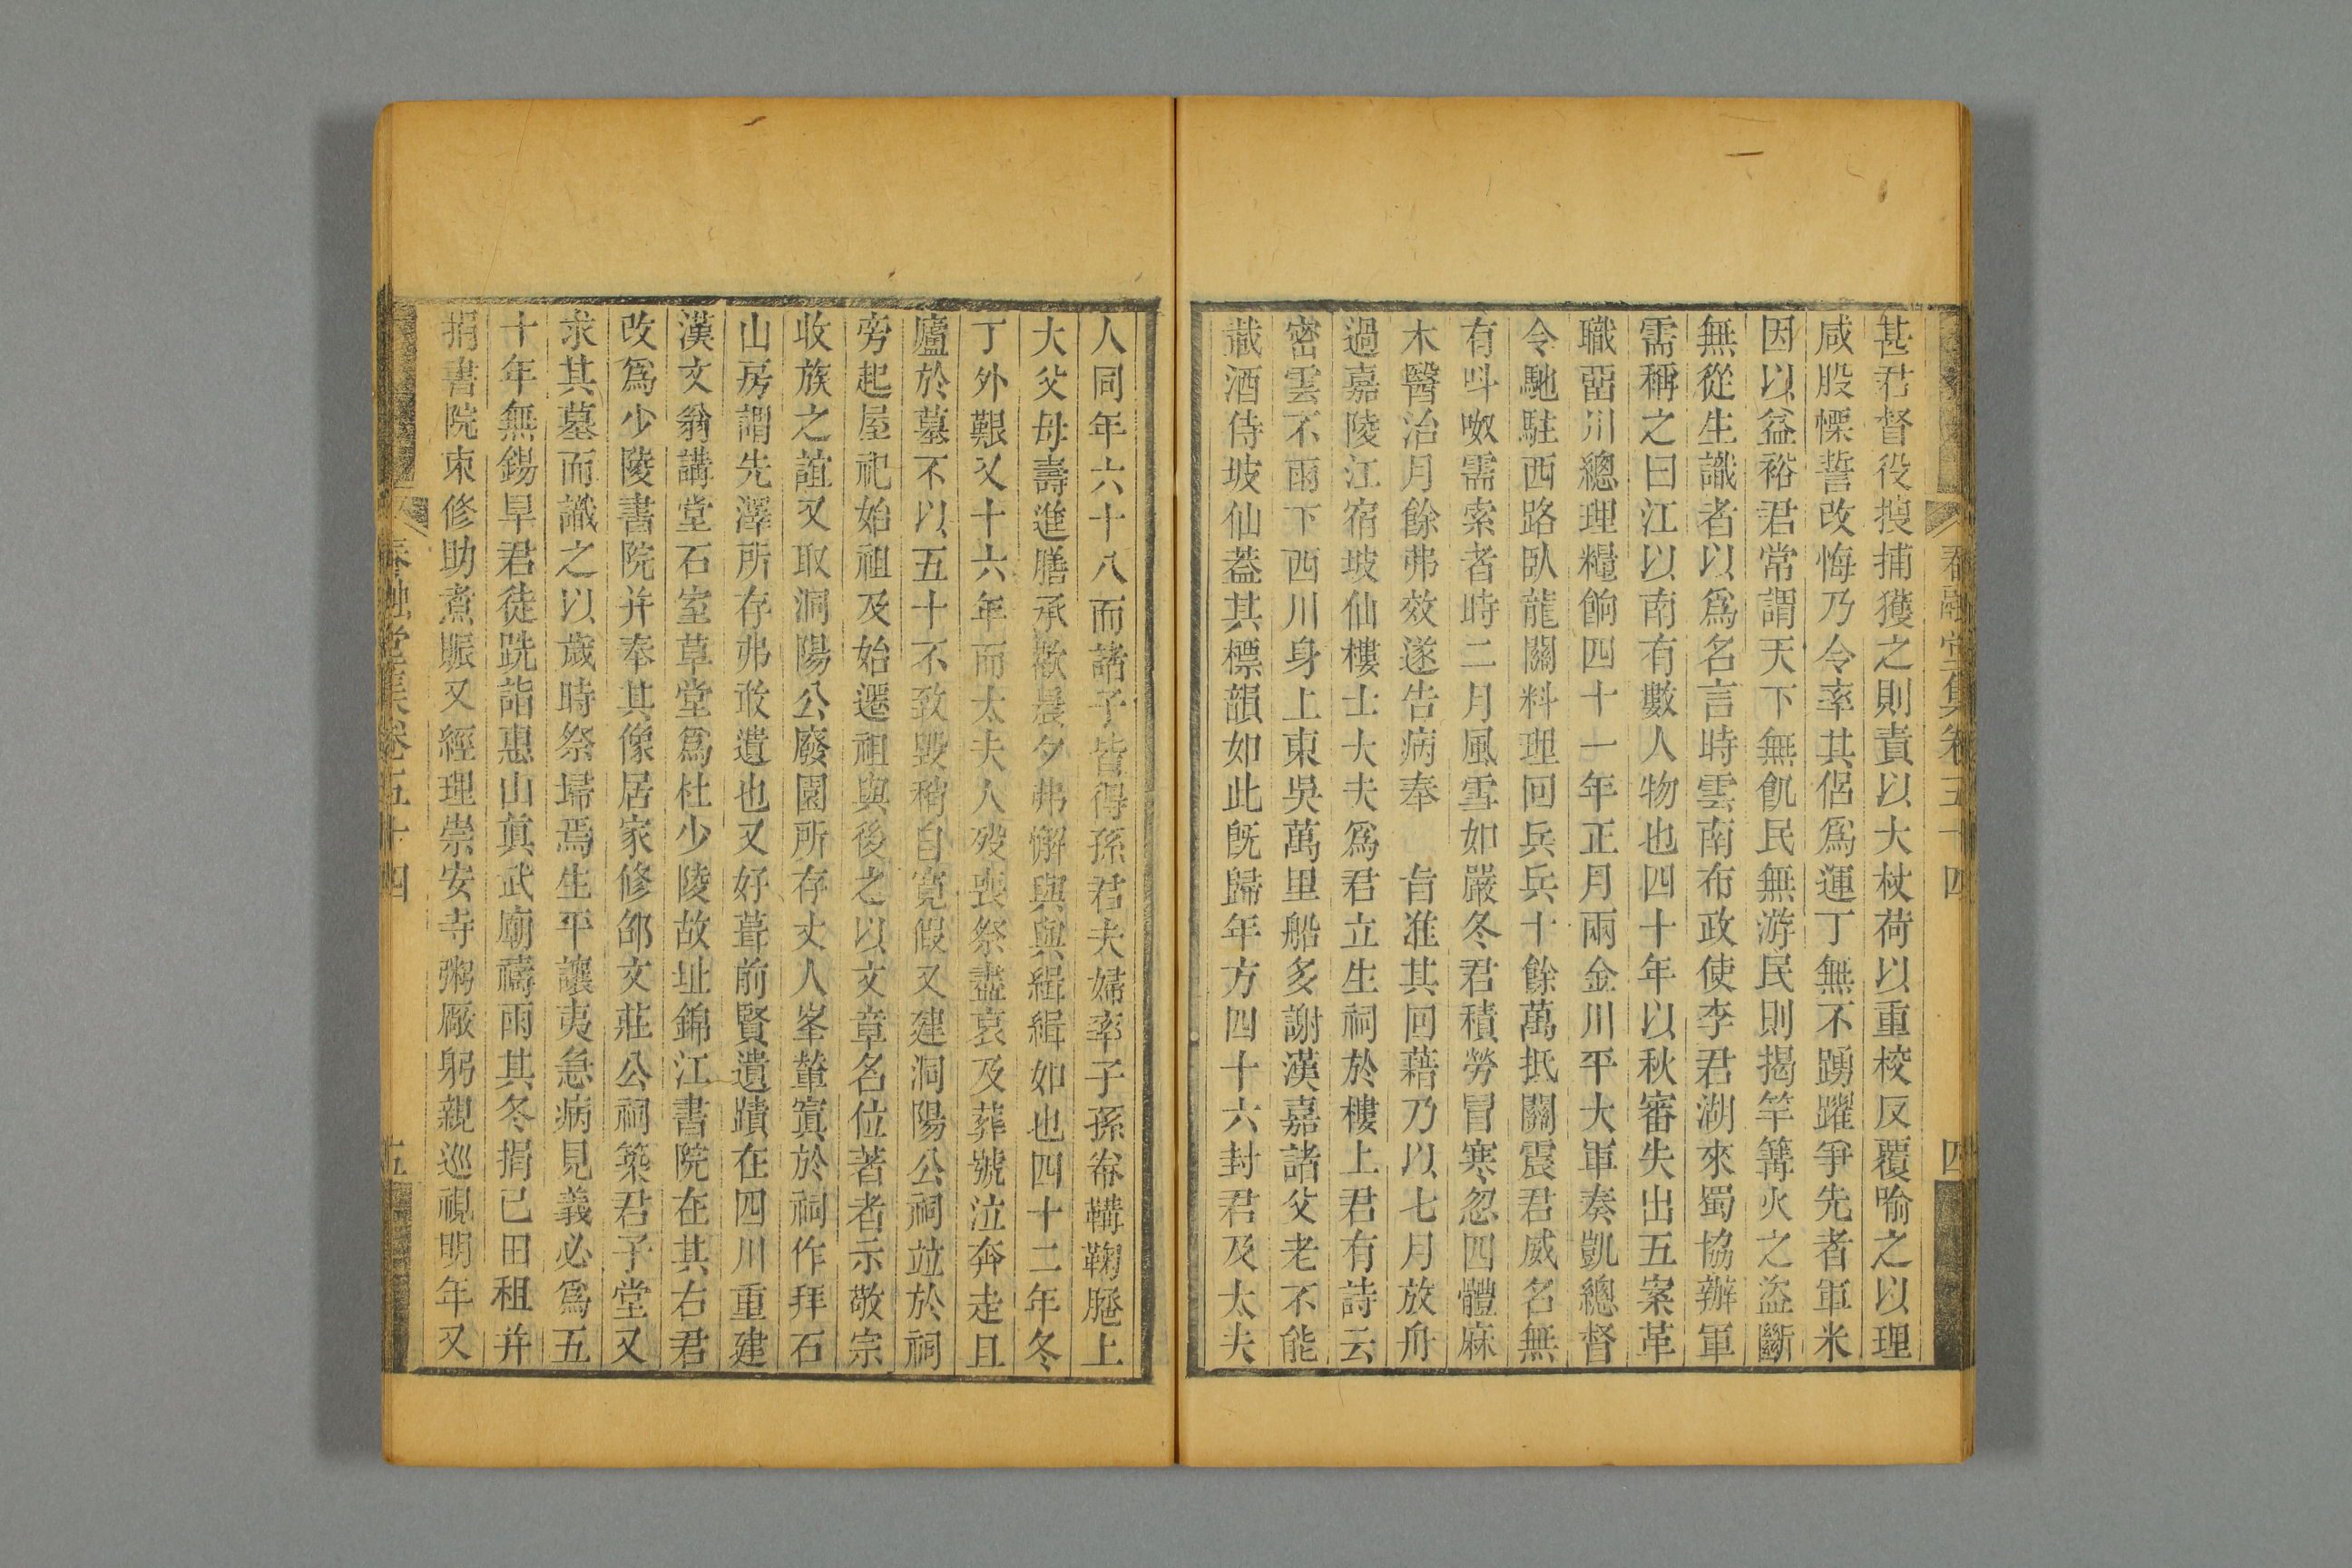 春融堂集卷五十四
四
甚君督役摉捕獲之則責以大杖荷以重校反覆喻之以理
咸股慄誓改悔乃令率其侶爲運丁無不踴躍爭先者軍米
因以益裕君常謂天下無飢民無游民則揭竿篝火之盜斷
無從生識者以爲名言時雲南布政使李君湖來蜀協辦軍
需稱之曰江以南有數人物也四十年以秋審失出五案革
職畱川總理糧餉四十一年正月兩金川平大軍奏凱總督
令馳駐西路臥龍關料理回兵兵十餘萬抵關震君威名無
有呌呶需索者時二月風雪如嚴冬君積勞冒寒忽四體麻
木醫治月餘弗效遂告病奉　旨准其回藉乃以七月放舟
過嘉陵江宿坡仙樓士大夫爲君立生祠於樓上君有詩云
密雲不雨下西川身上東吳萬里船多謝漢嘉諸父老不能
載酒侍坡仙葢其標韻如此旣歸年方四十六封君及太夫
人同年六十八而諸子皆得孫君夫婦率子孫帣鞲鞠䠆上
大父母壽進膳承歡晨夕弗懈與與緝緝如也四十二年冬
丁外艱又十六年而太夫人歿喪祭盡哀及葬號泣奔走且
廬於墓不以五十不致毀稍自寬假又建洞陽公祠竝於祠
旁起屋祀始祖及始遷祖與後之以文章名位著者示敬宗
收族之誼又取洞陽公廢園所存丈人峯輦寘於祠作拜石
山房謂先澤所存弗敢遺也又好葺前賢遺蹟在四川重建
漢文翁講堂石室草堂爲杜少陵故址錦江書院在其右君
改爲少陵書院并奉其像居家修邵文莊公祠築君子堂又
求其墓而識之以歲時祭埽焉生平讓夷急病見義必爲五
十年無錫旱君徒跣詣惠山眞武廟禱雨其冬捐己田租并
捐書院束修助煮賑又經理崇安寺粥厰躬親巡視明年又
春融堂集卷五十四
五